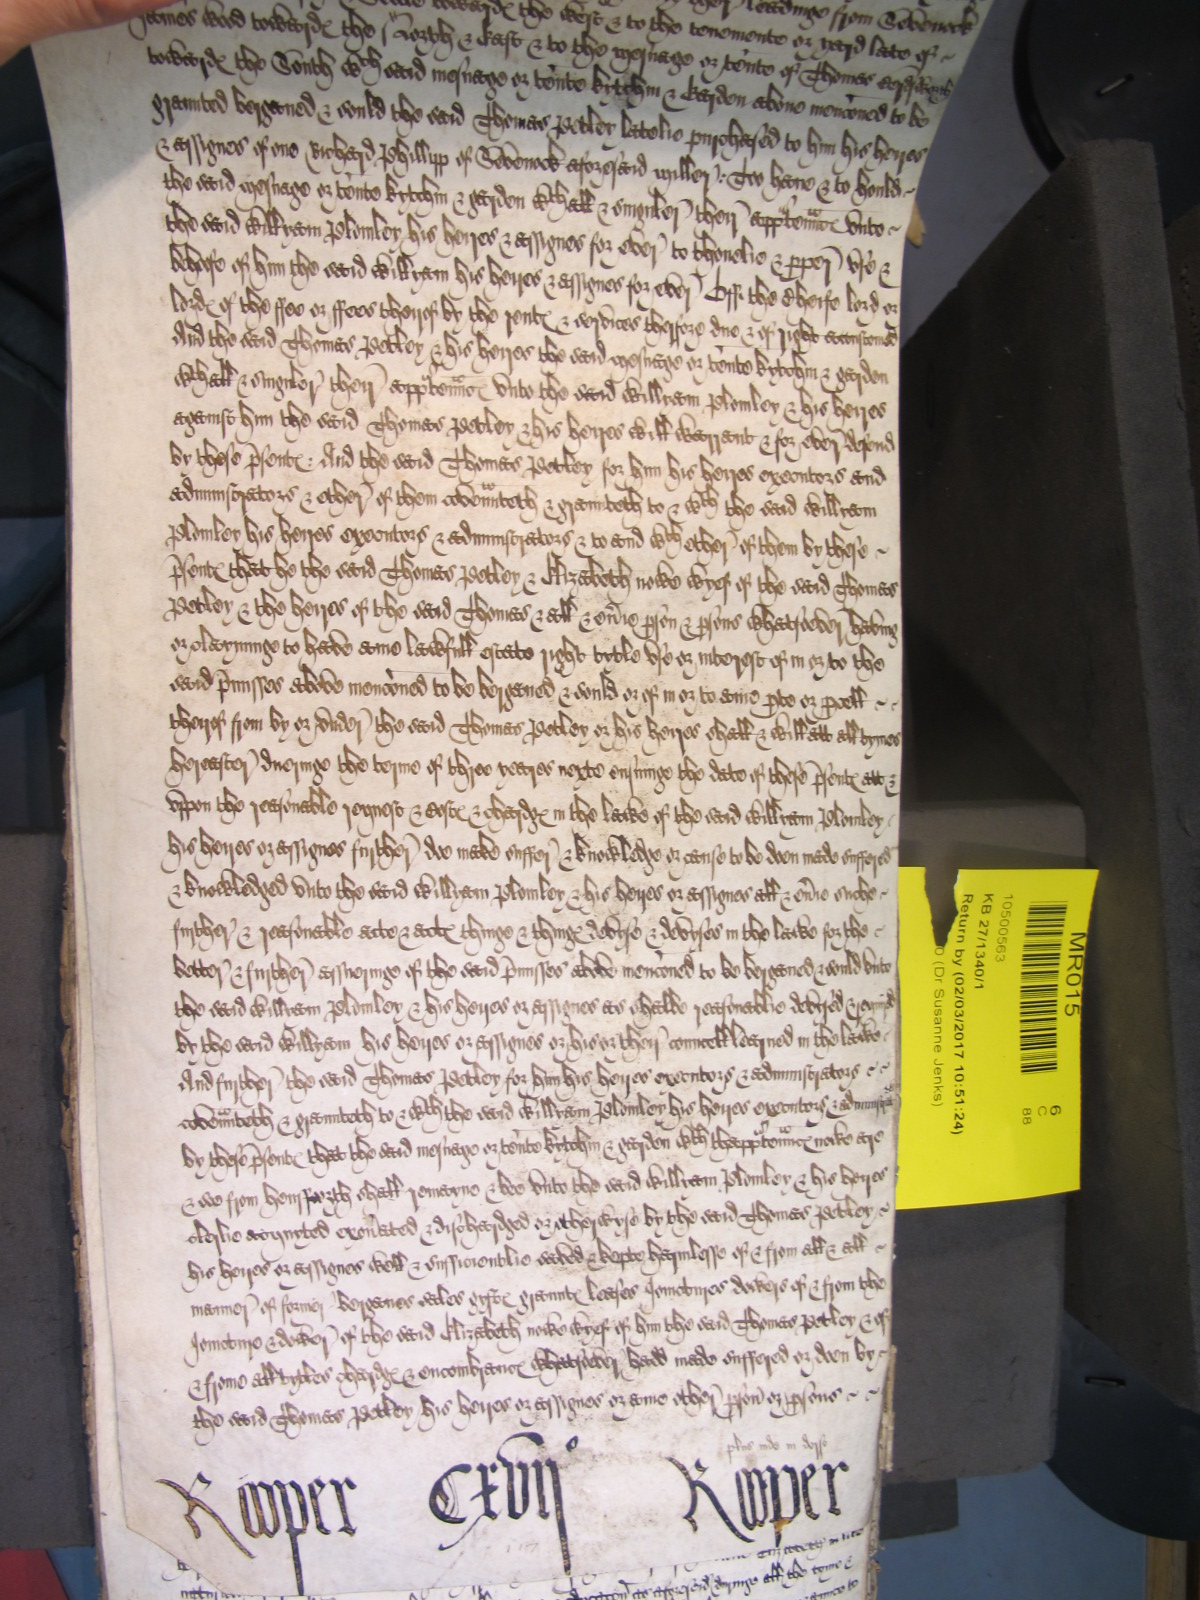 towardℯ the West & to the tenemente or yard late of
James towardℯ the North & East & to the mesuage or ten̄te of Thomas
towardℯ the South wch said mesuage or ten̄te kytchin & Garden above menc̄oned to be
graunted barganed & sould the said Thomas Petley latelie purchased to him his heires
& assignes of one Richard Phillipp of Sevenock aforesaid myller: To have & to hould
the said mesuage or ten̄te kytchin & garden wth all & singuler their app'ten̄ncℯ unto
the said Willyam Plomley his heires & assignes for ever to thonelie & p̱per use &
behofe of him the said Willyam his heires & assignes for ever Of the Cheife lord or
lordℯ of the ffee or ffees therof by the rentℯ & services therfore due & of right accustomed
And the said Thomas Petley & his heires the said mesuage or ten̄te kytchin & garden
wth all & singuler their app'ten̄ncℯ unto the said Willyam Plomley & his heires
against him the said Thomas Petley & his heires will warrant & for ever defend
by these p̄sentℯ: And the said Thomas Petley for him his heires executors and
administrators & ether of them coven̄nteth & graunteth to & wth the said Willyam
Plomley his heires executors & administrators & to and wth ether of them by these
p̄sentℯ that he the said Thomas Petley & Elizabeth nowe wyef of the said Thomas
Petley & the heires of the said Thomas & all & ev̄ie p̱son & p̱sons whatsoever having
or clayminge to have anie lawfull estate right tytle use or interest of in or to the
said p̄misses above menc̄oned to be barganed & sould or of in or to anie p̱te or p̱cell
therof from by or under the said Thomas Petley or his heires shall & will att all tymes
hereafter duringe the terme of three yeares nexte ensuinge the date of these p̄sentℯ att &
uppon the reasonable request & costℯ & chardgℯ in the lawe of the said Willyam Plomley
his heires or assignes further doe make suffer & knowledge or cause to be doen made suffered
& knowledged unto the said Willyam Plomley & his heires or assignes all & ev̄ie suche
further & reasonable acte & actℯ thinge & thingℯ devyse & devyses in the lawe for the
better & further assueringe of the said p̄misses above menc̄oned to be barganed & sould unto
the said Willyam Plomley & his heires or assignes as shalbe reasonablie devysed
by the said Willyam his heires or assignes or his or their councell learned in the lawe
And further the said Thomas Petley for him his heires executors & administrators
coven̄nteth & graunteth to & wth the said Willyam Plomley his heires executors & administrat
by these p̄sentℯ that the said mesuage or ten̄te kytchin & garden wth thapp'ten̄ncℯ nowe are
& soe from hensforth shall remayne & bee unto the said Willyam Plomley & his heires
clerlie acquyted exon̄ated & dischardged or otherwyse by the said Thomas Petley
his heires or assignes well & sufficientlie saved & kepte harmlesse of & from all & all
manner of former barganes sales gyftℯ grauntℯ leases Joyntures dowers of & from the
Joynture & dower of the said Elizabeth nowe wyef of him the said Thomas Petley & of
& frome all tytles chardgℯ & encombrancℯ whatsoever hadd made suffered or doen by
the said Thomas Petley his heires or assignes or anie other p̱son or p̱sons
plus inde in dorso
Rooper CXVIIo Rooper
MR015
6
C
88
10500563
KB 27/1340/1
Return by (02/03/2017 10:51:24)
(Dr Susanne Jenks)